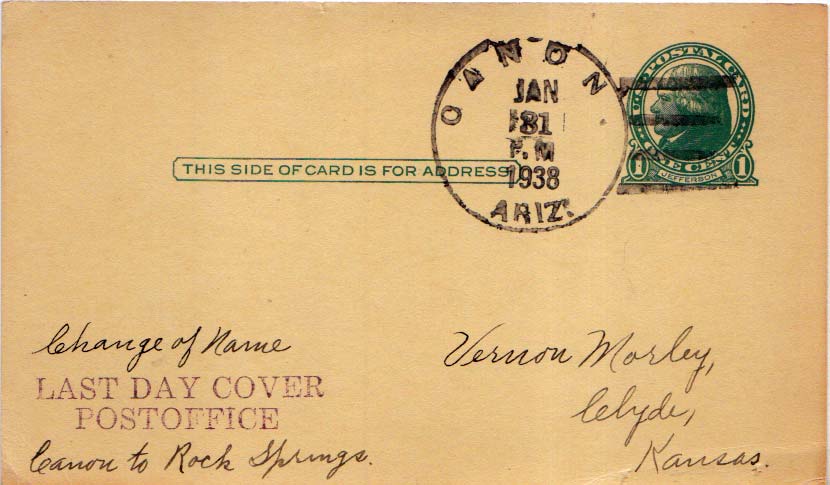 CANON
JAN
31
P.M
1938
ARIZ.
U.S. POSTAL CARD
ONE CENT
1 JEFFERSON 1
THIS SIDE OF CARD IS FOR ADDRESS
Change of Name
LAST DAY COVER
POSTOFFICE
Canon to Rock Springs.
Vernon Morley,
Clyde,
Kansas.